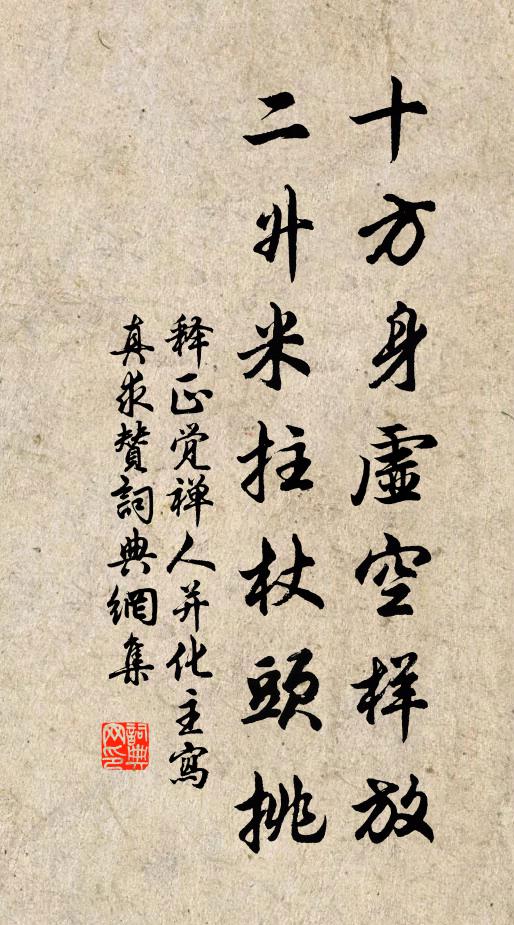 十方身虛空样放
二升米拄杖頭挑
释正觉禅人并化主寫
真求赞詞典網集
詞典